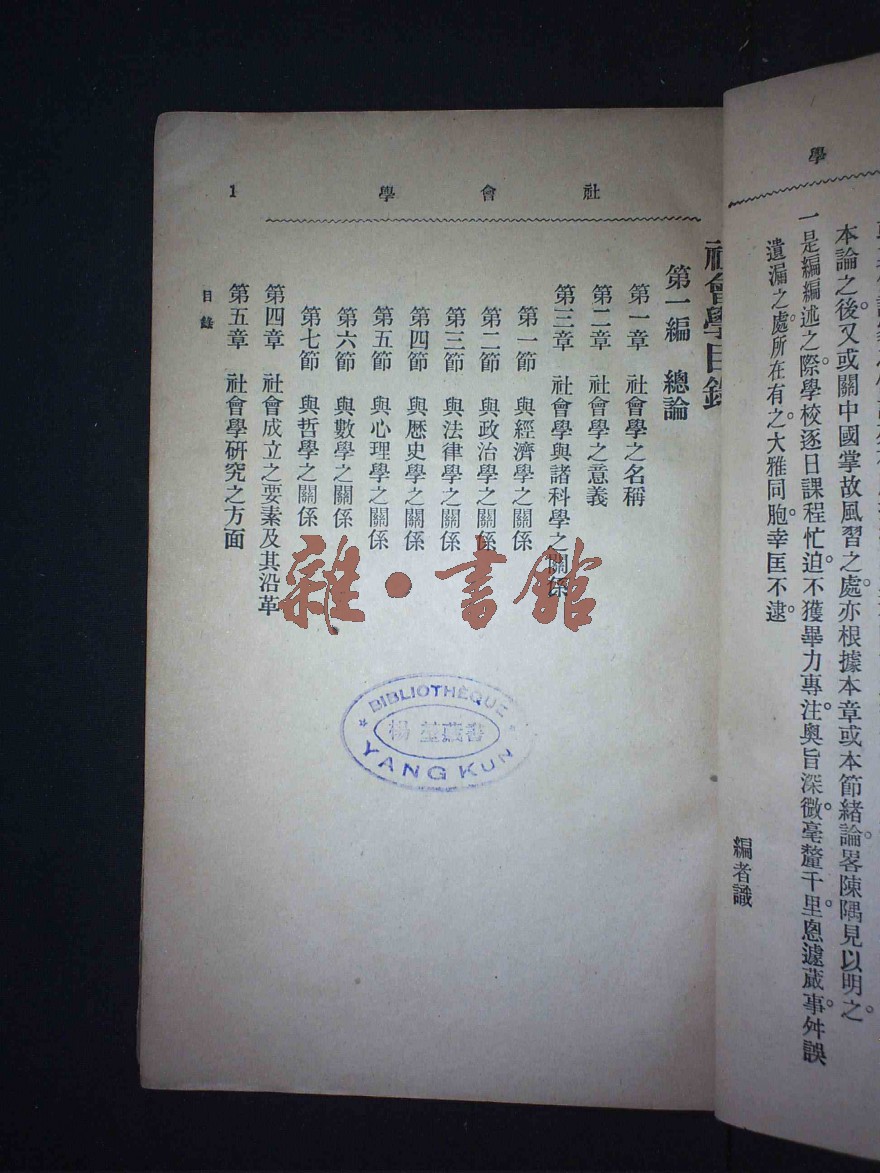 學
本論之後。又或關中國掌故風習之處。亦根據本章或本節緒論。畧陳隅見以明之。
一是編編述之際。學校逐日課程忙迫。不獲畢力專注。奧旨深微。毫釐千里。恩遽蕆事。舛誤
遺漏之處。所在有之。大雅同胞。幸匡不逮。
編者識
社會學
1
社會學目錄
第一編 總論
第一章 社會學之名稱
第二章 社會學之意義
第三章 社會學與諸科學之關係
第一節 與經濟學之關係
第二節 與政治學之關係
第三節 與法律學之關係
第四節 與歷史學之關係
第五節 與心理學之關係
第六節 與數學之關係
第七節 與哲學之關係
第四章 社會成立之要素及其沿革
第五章 社會學研究之方面
目錄
雜·書館
BIBLIOTHÈQUE
楊堃藏書
YANG KUN